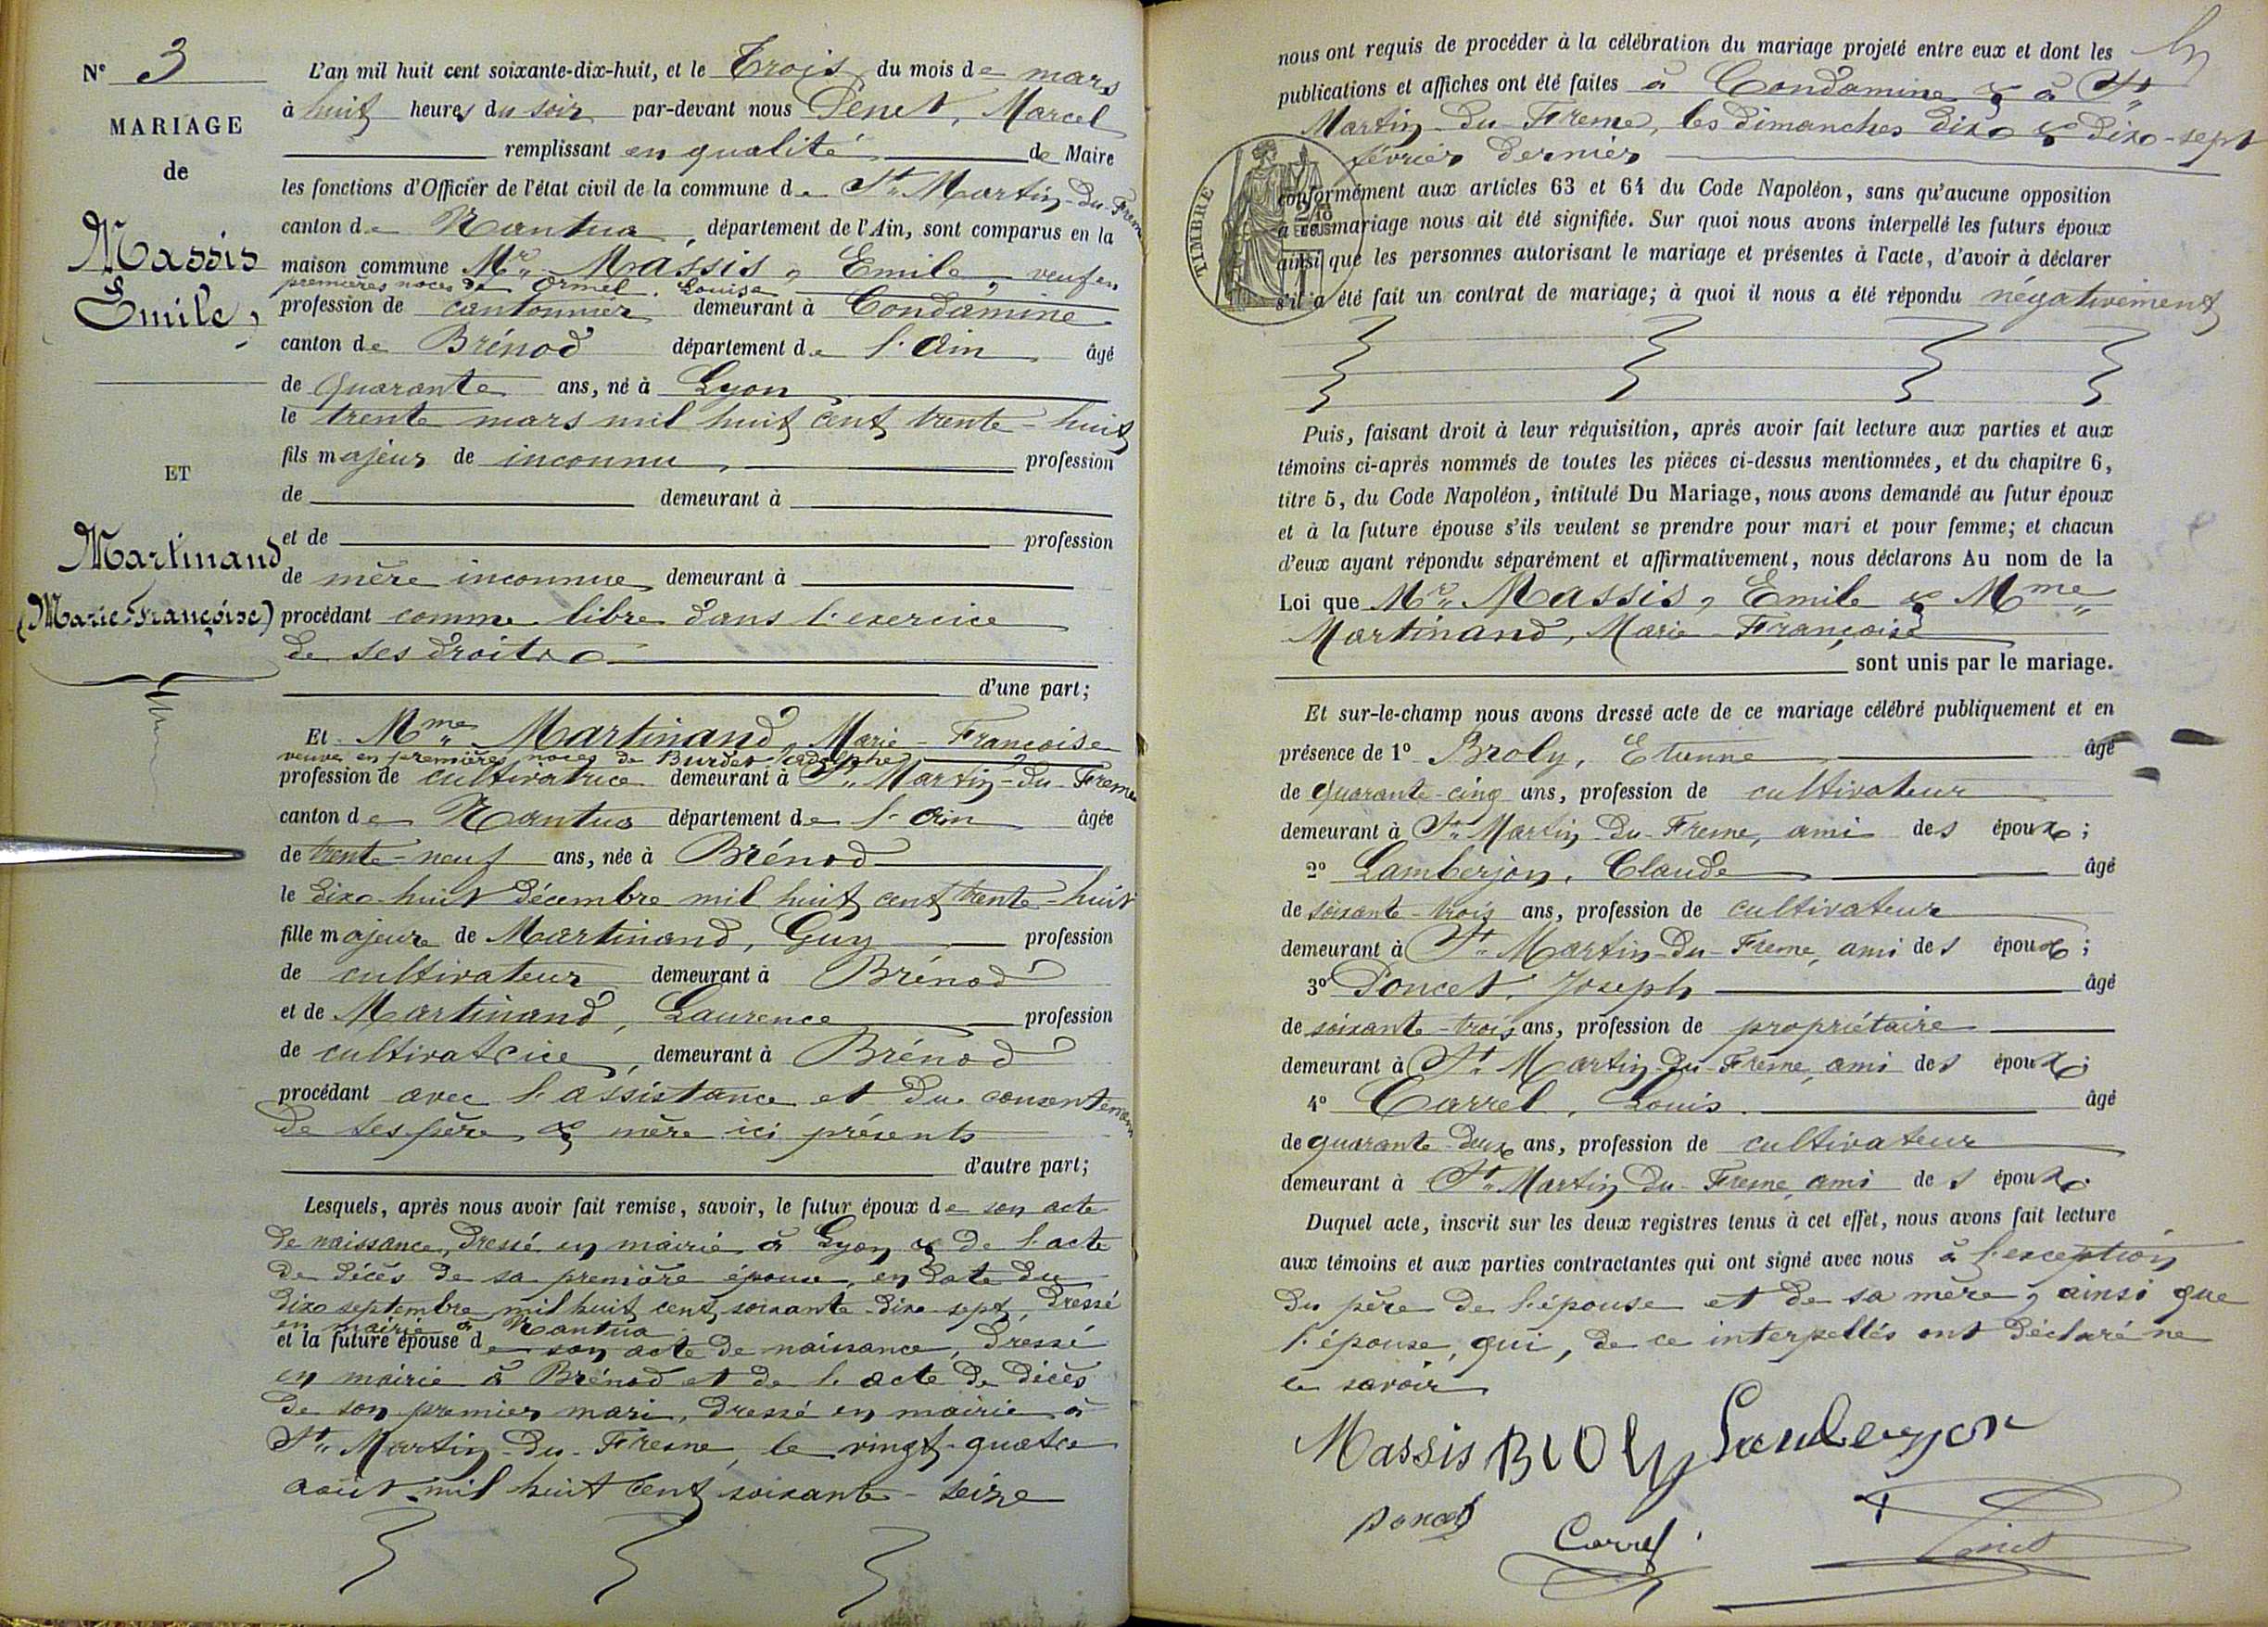 N° 3
MARIAGE
de
Massis
Emile,
ET
Martinand
(Marie-Françoise)
L'an mil huit cent soixante-dix-huit, et le Trois du mois de mars
à huit heures du soir par-devant nous Penet, Marcel
remplissant en qualité de Maire
les fonctions d'Officier de l'état civil de la commune de St Martin-du-Frene
canton de Nantua, département de l'Ain, sont comparus en la
maison commune Mr Massis, Emile, veuf en
premières noces de Ormel. Louise
profession de cantonnier demeurant à Condamine
canton de Brénod département de l'Ain âgé
de quarante ans, né à Lyon
le trente mars mil huit cent trente-huit
fils majeur de inconnu, profession
de demeurant à
et de profession
de mère inconnue demeurant à
procédant comme libre dans l'exercice
de ses droits
d'une part;
Et Mme Martinand, Marie-Françoise
veuve en premières noces de Burdet
profession de cultivatrice demeurant à St Martin-du-Frene
canton de Nantua département de l'Ain âgée
de trente-neuf ans, née à Brénod
le dix-huit décembre mil huit cent trente-huit
fille majeure de Martinand, Guy profession
de cultivateur demeurant à Brénod
et de Martinand, Laurence profession
de cultivatrice, demeurant à Brénod
procédant avec l'assistance et du consentement
de ses père & mère ici présents
d'autre part;
Lesquels, après nous avoir fait remise, savoir, le futur époux de son acte
de naissance, dressé en mairie à Lyon & de l'acte
de décès de sa première épouse, en date du
dix septembre mil huit cent soixante-dix-sept, dressé
en mairie à Nantua
et la future épouse de son acte de naissance, dressé
en mairie à Brénod et de l'acte de décès
de son premier mari, dressé en mairie à
St Martin-du-Fresne, le vingt-quatre
août mil huit cent soixante-seize
nous ont requis de procéder à la célébration du mariage projeté entre eux et dont les
publications et affiches ont été faites à Condamine & à St
Martin-du-Frene, les dimanches dix & dix-sept
février dernier
TIMBRE
conformément aux articles 63 et 64 du Code Napoléon, sans qu'aucune opposition
à ce mariage nous ait été signifiée. Sur quoi nous avons interpellé les futurs époux
ainsi que les personnes autorisant le mariage et présentes à l'acte, d'avoir à déclarer
s'il a été fait un contrat de mariage; à quoi il nous a été répondu négativement
Puis, faisant droit à leur réquisition, après avoir fait lecture aux parties et aux
témoins ci-après nommés de toutes les pièces ci-dessus mentionnées, et du chapitre 6,
titre 5, du Code Napoléon, intitulé Du Mariage, nous avons demandé au futur époux
et à la future épouse s'ils veulent se prendre pour mari et pour femme; et chacun
d'eux ayant répondu séparément et affirmativement, nous déclarons Au nom de la
Loi que Mr Massis, Emile & Mme
Martinand, Marie-Françoise
sont unis par le mariage.
Et sur-le-champ nous avons dressé acte de ce mariage célébré publiquement et en
présence de 1° Broly, Etienne âgé
de quarante-cinq ans, profession de cultivateur
demeurant à St Martin du Frene, ami des époux;
2° Lamberjon, Claude âgé
de soixante-trois ans, profession de cultivateur
demeurant à St Martin-du-Frene, ami des époux;
3° Poncet, Joseph âgé
de soixante-trois ans, profession de propriétaire
demeurant à St Martin-du-Frene, ami des époux;
4° Carrel, Louis. âgé
de quarante-deux ans, profession de cultivateur
demeurant à St Martin du-Frene ami des époux
Duquel acte, inscrit sur les deux registres tenus à cet effet, nous avons fait lecture
aux témoins et aux parties contractantes qui ont signé avec nous à l'exception
du père de l'épouse et de sa mère, ainsi que
l'épouse, qui, de ce interpellés ont déclaré ne
le savoir
Massis Broly Lamberjon
Poncet
Carrel Penet